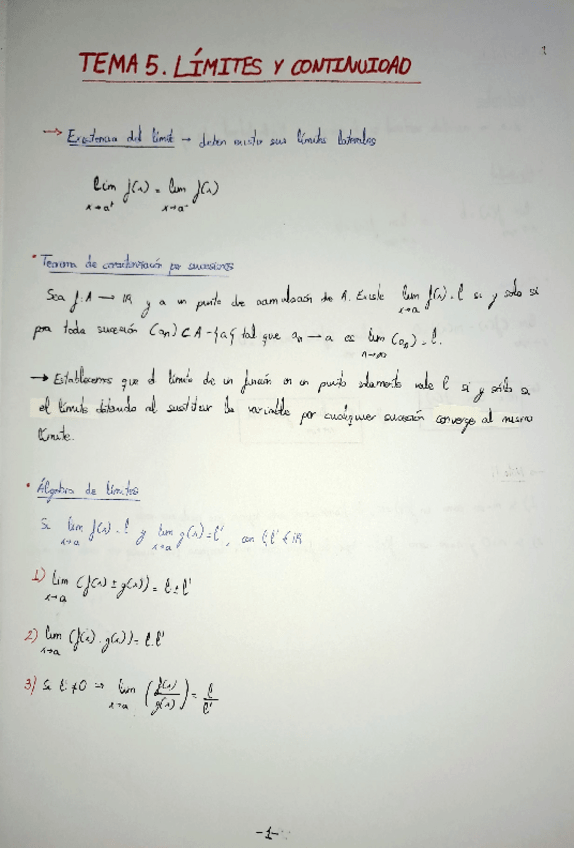 1
TEMA 5. LÍMITES Y CONTINUIDAD
→ Existencia del límite → deben existir sus límites laterales
lim f(x) = lim f(x)
x→a⁺ x→a⁻
• Teorema de caracterización por sucesiones
Sea f: A → ℝ y a un punto de acumulación de A. Existe lim f(x) = l si y solo si
x→a
para toda sucesión (an) ⊂ A - {a} tal que an → a es lim (an) = l.
n→∞
→ Establecemos que el límite de una función en un punto solamente vale l si y sólo si
el límite obtenido al sustituir la variable por cualquier sucesión converge al mismo
límite.
• Álgebra de límites
Si lim f(x) = l y lim g(x) = l', con l, l' ∈ ℝ
x→a x→a
1) lim (f(x) ± g(x)) = l ± l'
x→a
2) lim (f(x) · g(x)) = l · l'
x→a
3) Si l' ≠ 0 ⇒ lim (f(x)/g(x)) = l/l'
x→a
-1-